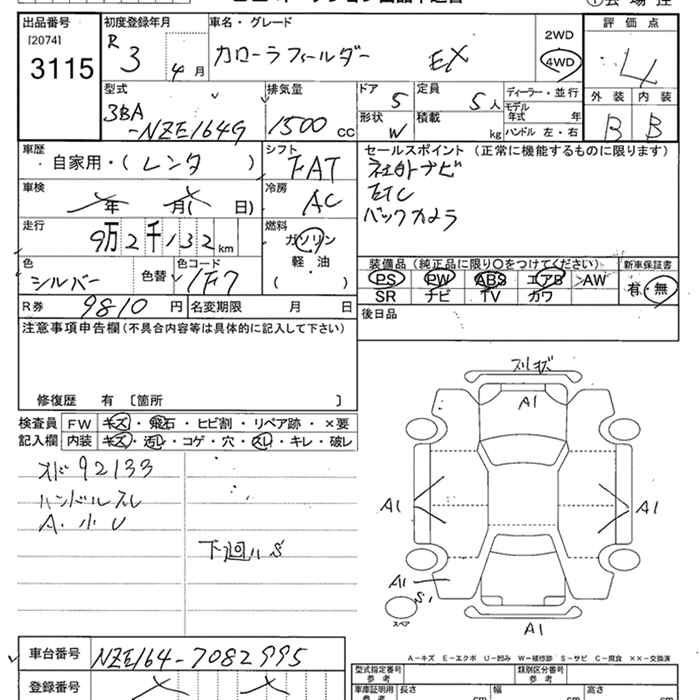 出品番号
[2074]
3115
初度登録年月
R 3 4月
車名・グレード
カローラフィールダー EX
2WD
4WD
評価点
4
外装 内装
B B
型式
3BA
-NZE164G
排気量
1500 cc
ドア
5
定員
5人
形状
W
積載
kg
ディーラー・並行
モデル年式 年
ハンドル 左・右
車歴
自家用・(レンタ)
シフト
FAT
車検
年 月( 日)
冷房
AC
走行
9万2千132km
燃料
ガソリン
軽・油
( )
色
シルバー
色替
色コード
1F7
R券
9810円
名変期限 月 日
セールスポイント(正常に機能するものに限ります)
社外ナビ
ETC
バックカメラ
装備品(純正品に限り○をつけてください)
PS PW ABS エアB AW
SR ナビ TV カワ
新車保証書
有・無
後日品
注意事項申告欄(不具合内容等は具体的に記入して下さい)
修復歴 有〔箇所 〕
検査員
記入欄
FW キズ・飛石・ヒビ割・リペア跡・×要
内装 キズ・汚レ・コゲ・穴・スレ・キレ・破レ
オド92133
ハンドルスレ
A・小U
下廻りS
スリキズ
A1
A1
A1
A1
S1
スペア
A1
A-キズ E-エクボ U-凹み W-補修跡 S-サビ C-腐食 XX-交換済
車台番号
NZE164-7082995
登録番号
型式指定番号
参考
類別区分番号
参考
車庫証明用
参考
長さ cm
幅 cm
高さ cm